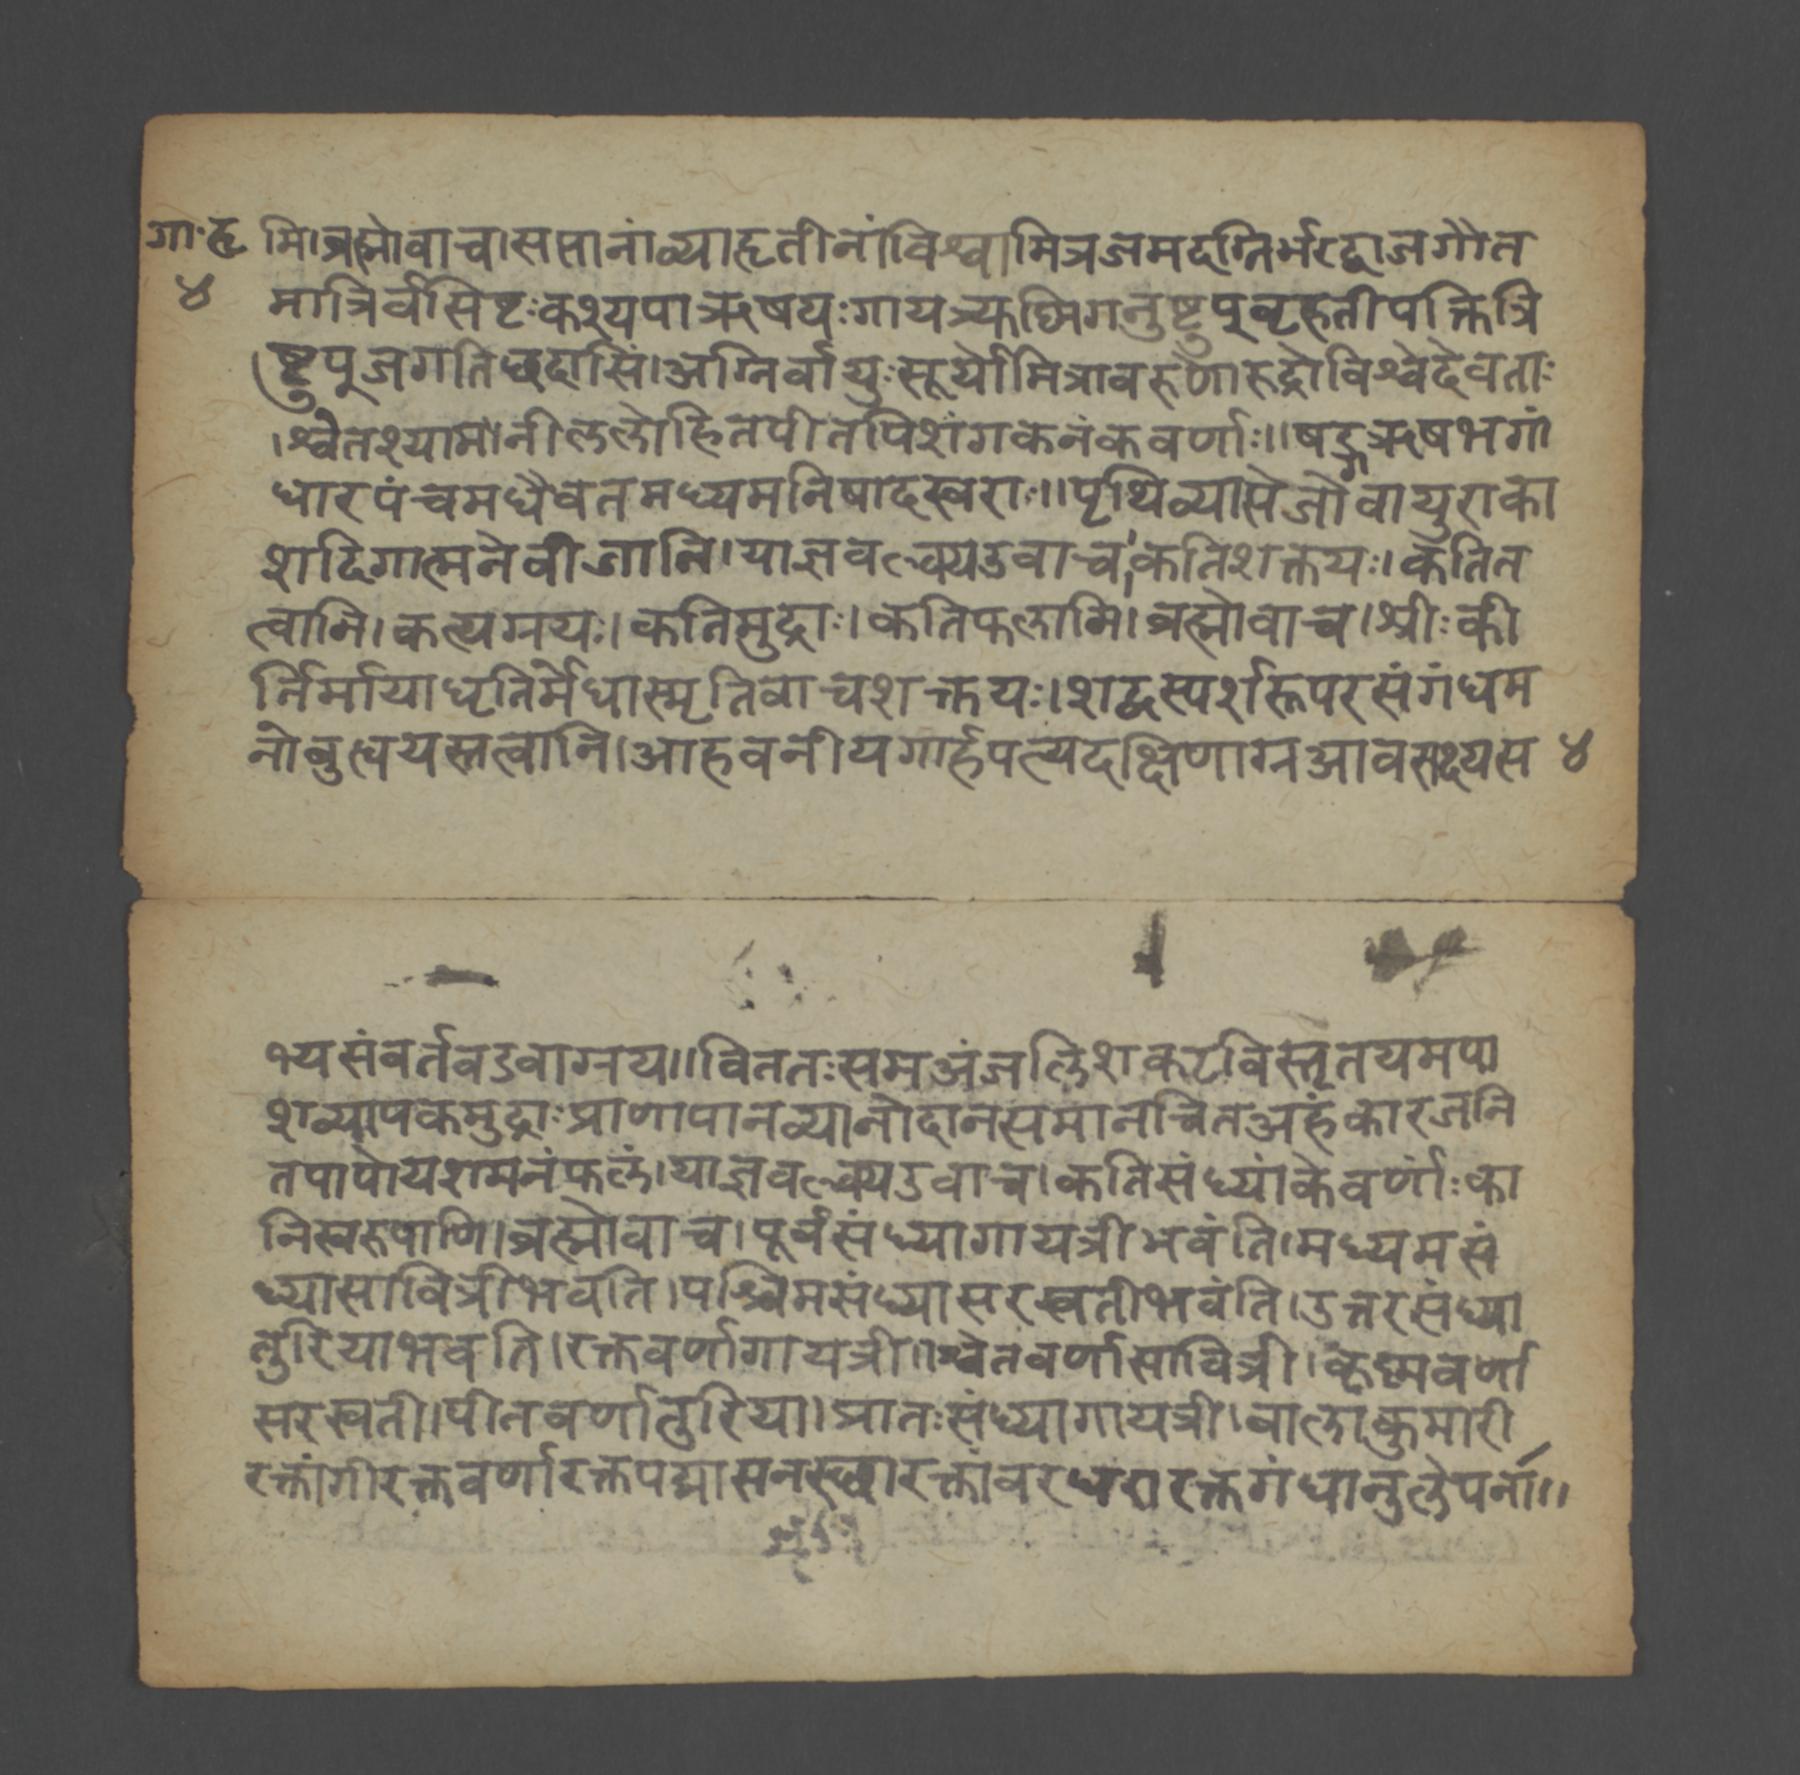 गा॰हृ मि।ब्रह्मोवाच।सप्तानांव्याहृतीनांविश्वामित्रजमदग्निर्भरद्वाजगौत
४ मात्रिर्वसिष्टःकश्यपाऋषयःगायत्र्युष्णिगनुष्टुप्वृहतीपक्तित्रि
ष्टुप्जगतिछदासिं।अग्निर्वायुःसूर्योमित्रावरुणारुद्रोविश्वेदेवताः
।श्वेतश्यामोनीललोहितपीतपिशंगकनंकवर्णाः॥षड्गऋषभगां
धारपंचमधैवतमध्यमनिषादस्वराः॥पृथिव्यासेजोवायुराका
शदिगात्मनेवीजानि।याज्ञवल्क्यउवाच।कतिशक्तयः।कतित
त्वानि।कत्यग्नयः।कतिमुद्राः।कतिफलानि।ब्रह्मोवाच।श्रीःकी
र्तिर्मायाधृतिर्मेधास्मृतिवाचशक्तयः।शद्वस्पर्शरूपरसंगंधम
नोबुत्धयस्तत्वानि।आहवनीयगार्हपत्यदक्षिणाग्नआवसथ्यस ४
भ्यसंवर्तवडवाग्नय॥विततःसमअंजलिशकटविस्तृतयमपा
शव्यापकमुद्राःप्राणापानव्यानोदानसमानचितअहंकारजनि
तपापोयशमनंफलं।याज्ञवल्क्यउवाच।कतिसंध्यांकेवर्णाःका
निस्वरूपाणि।ब्रह्मोवाच।पूर्वसंध्यागायत्रीभवंति।मध्यमसं
ध्यासावित्रीभवति।पश्चिमसंध्यासरस्वतीभवंति।उत्तरसंध्या
तुरियाभवति।रक्तवर्णागायत्री॥श्वेतवर्णासावित्री।कृष्णवर्णा
सरस्वती।पीतवर्णातुरिया।प्रातःसंध्यागायत्री।वालाकुमारी
रक्तांगीरक्तवर्णारक्तपद्मासनस्छारक्तांवरधरारक्तगंधानुलेपर्ना॥